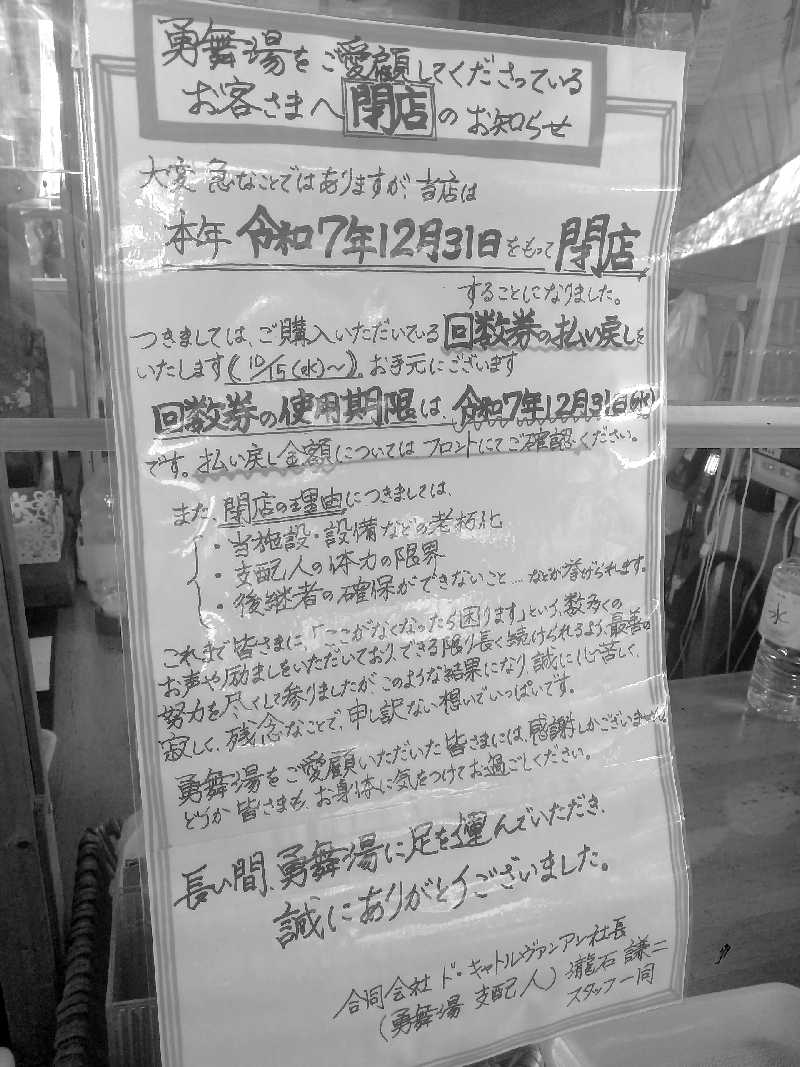 勇舞場をご愛顧してくださっている
お客さまへ閉店のお知らせ
大変急なことではありますが、当店は
本年 令和7年12月31日をもって閉店
することになりました。
つきましては、ご購入いただいている回数券の払い戻しを
いたします(10/15(水)〜)。お手元にございます
回数券の使用期限は、令和7年12月31日(水)
です。払い戻し金額についてはフロントにてご確認ください。
また、閉店の理由につきましては、
・当施設・設備などの老朽化
・支配人の体力の限界
・後継者の確保ができないこと…などが挙げられます。
これまで皆さまに、「ここがなくなったら困ります」という、数多くの
お声や励ましをいただいており、できる限り長く続けられるよう、最善の
努力を尽くして参りましたが、このような結果になり、誠に心苦しく、
寂しく、残念なことで、申し訳ない想いでいっぱいです。
勇舞場をご愛顧いただいた皆さまには、感謝しかございません。
どうか皆さまも、お身体に気をつけてお過ごしください。
長い間、勇舞場に足を運んでいただき、
誠にありがとうございました。
合同会社 ド・キャトルヴァンアン社長
(勇舞場 支配人) 瀧石 謙二
スタッフ一同
水